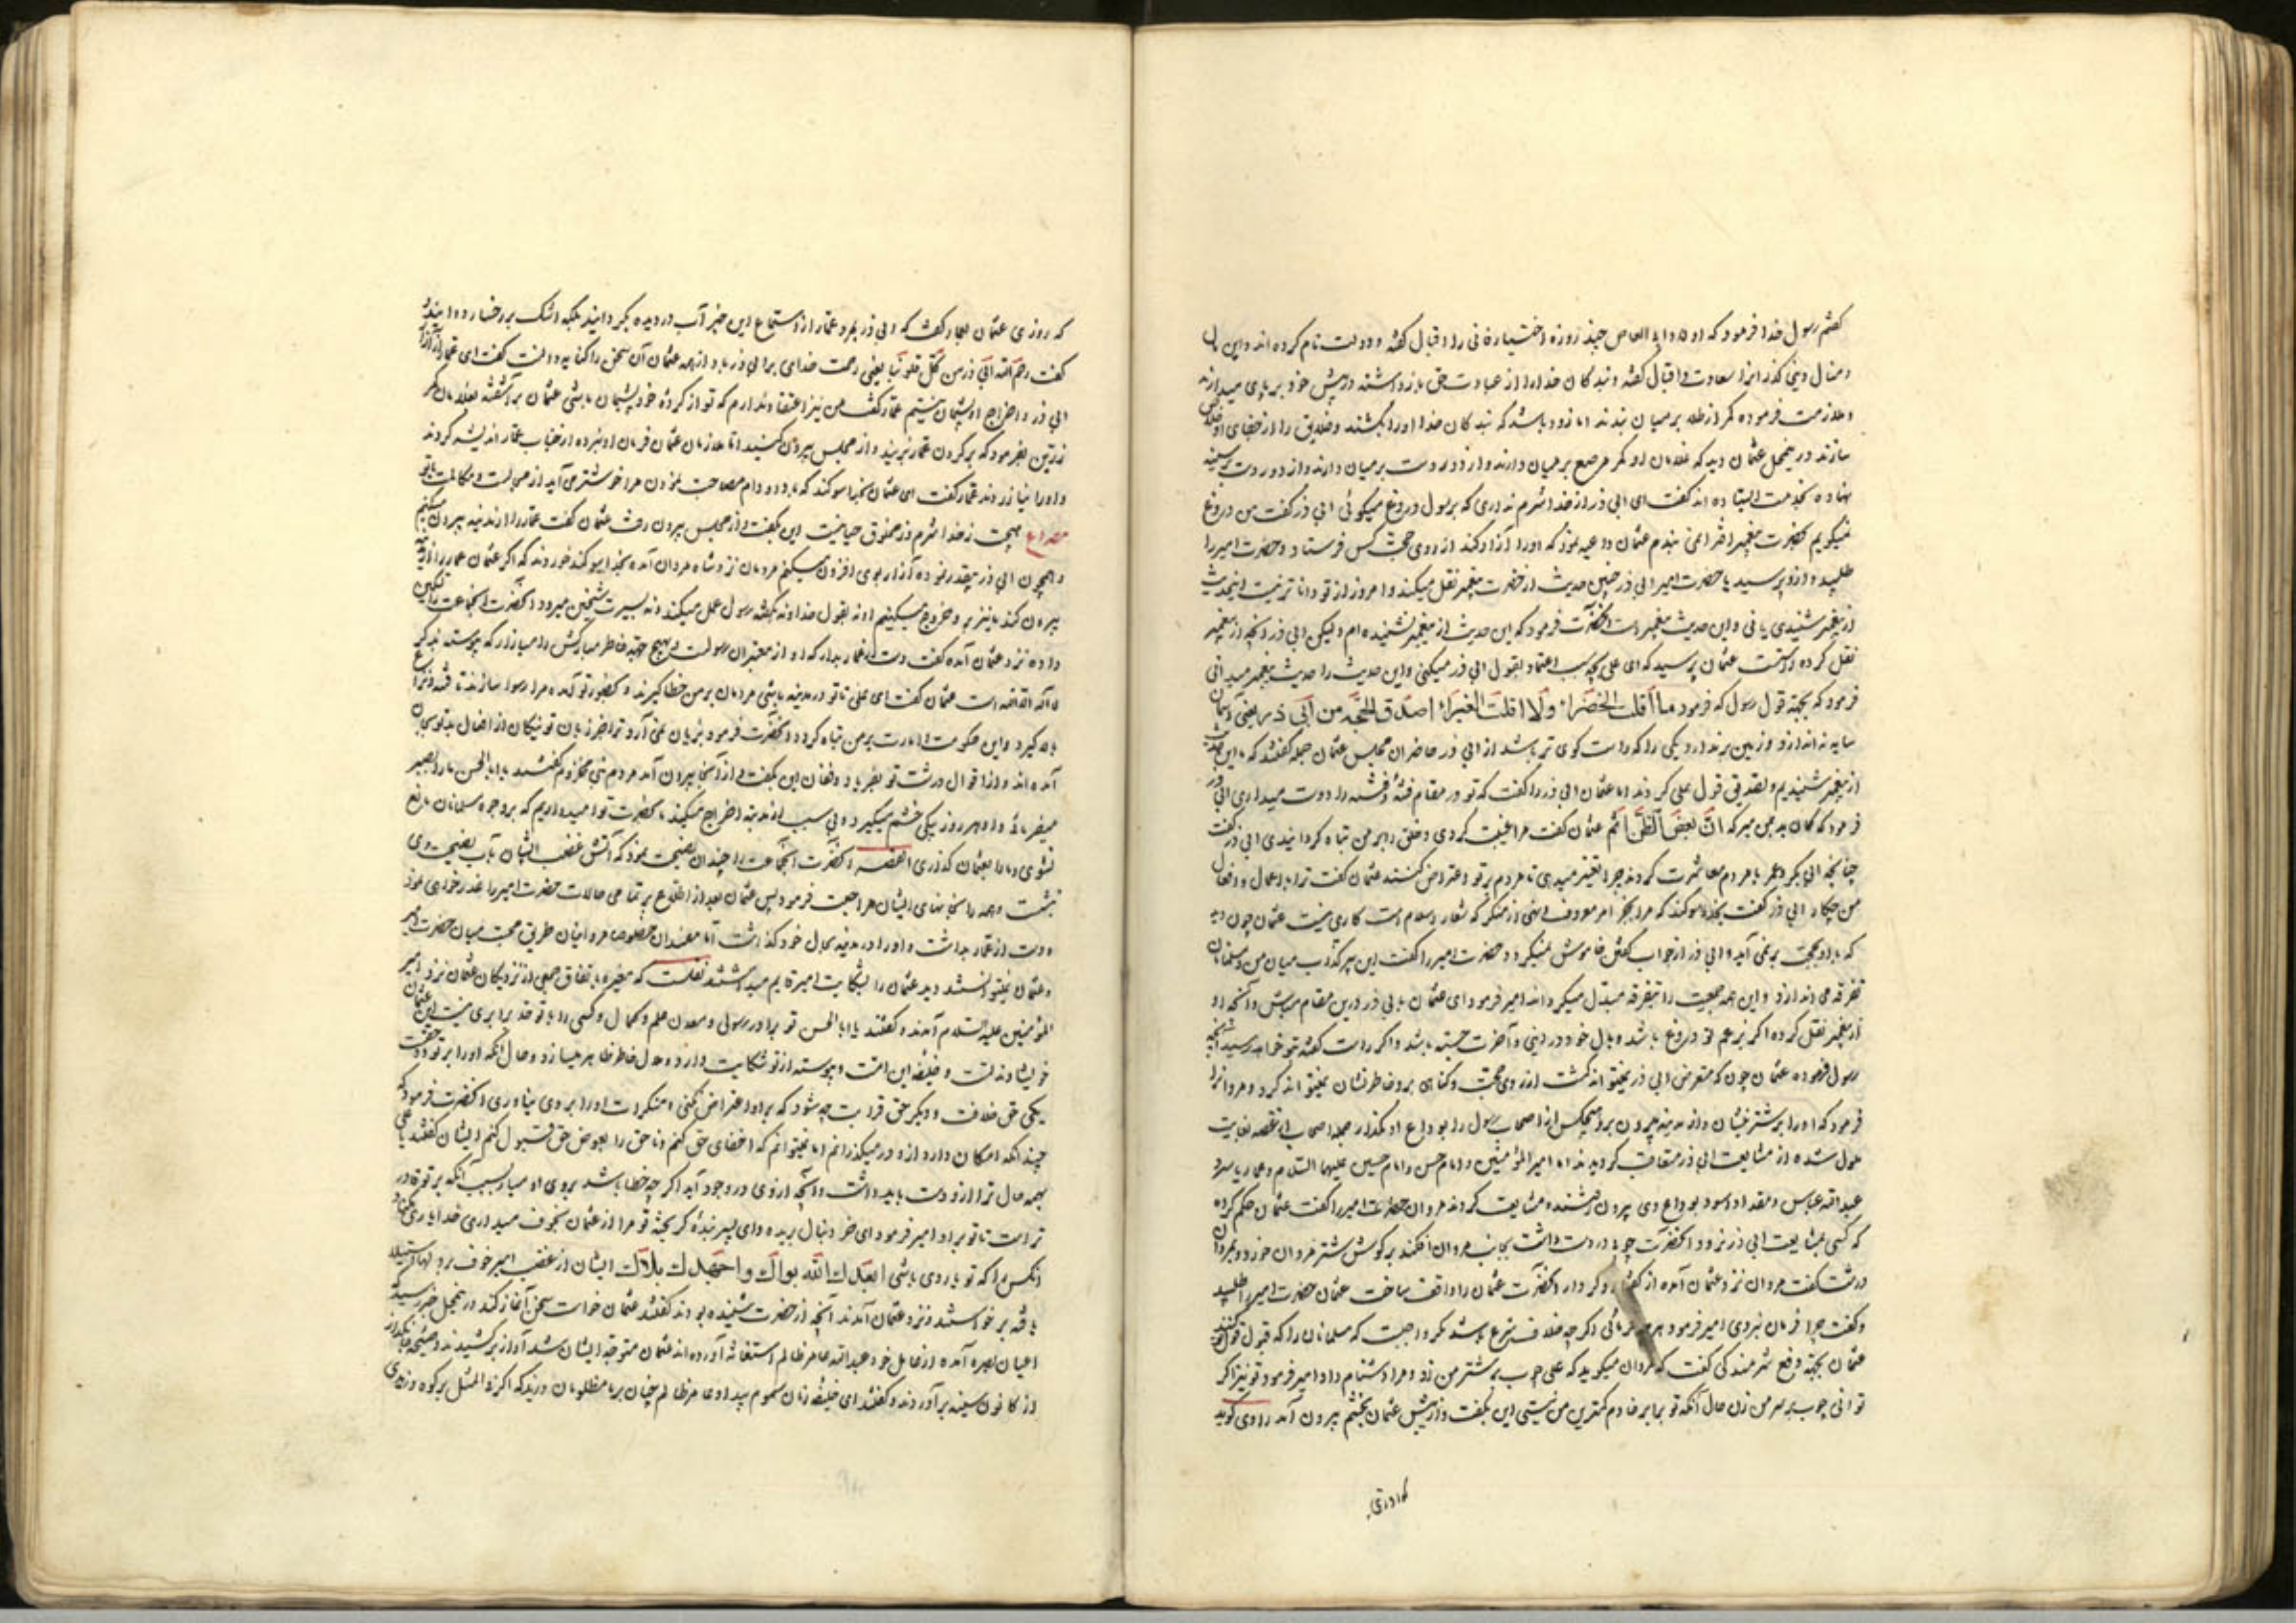 کفتم رسول خدا فرمود که اولاد ابی العاص چند روزه اختیار فانی را اقبال گفته و دولت نام کرده اند و این
و منال دینی گذرانرا سعادت و اقبال گفته و بندکان خدا را از عبادت حق بازداشته در پیش خود بر پای میدارند
و ملازمت فرموده کمر از طلا بر میان بندند اما زود باشد که بندکان خدا او را بکشند و خلایق را از جفای او خلاص
سازند در محفل عثمان دید که غلامان او کمر مرصع بر میان دارند و از دو رو دست بر میان دارند و از دو رو دست بر سینه
نهاده بخدمت ایستاده اند گفت ای ابی ذر از خدا شرم نداری که بر رسول دروغ میکوئی ابی ذر گفت من دروغ
نمیکویم بحضرت پیغمبر افترا نمی بندم عثمان داعیه نمود که او را آزار کند از روی حجت کس فرستاد و حضرت امیر را
طلبید و ازو پرسید یا حضرت امیر ابی ذر چنین حدیث از حضرت پیغمبر نقل میکند و امروز از تو داناتر نیست اینحدیث
از پیغمبر شنیدی یا نی و این حدیث پیغمبر است آنحضرت فرمود که این حدیث از پیغمبر نشنیده ام ولیکن ابی ذر آنچه از پیغمبر
نقل کرده راست است عثمان پرسید که ای علی بچه سبب اعتماد بقول ابی ذر میکنی و این حدیث را حدیث پیغمبر میدانی
فرمود که بجهة قول رسول که فرمود ما اقلت الخضراء ولا اقلت الغبراء اصدق اللهجة من ابی ذر یعنی آسمان
سایه نه اندازد و زمین برندارد یکی را که راست کوی تر باشد از ابی ذر حاضران مجلس عثمان جمله گفتند که ما این حدیث
از پیغمبر شنیدیم و تصدیق قول علی کردند اما عثمان ابی ذر را گفت که تو در مقام فتنه و فتنه را دوست میداری ابی ذر
فرمود که کمان بد بمن مبر که ان بعض الظن اثم عثمان گفت مرا غیبت کردی و خلق را بر من تباه کردانیدی ابی ذر گفت
چنانچه ابی بکر و عمر با مردم معاشرت کردند چرا تغییر میدهی تا مردم بر تو اعتراض نکنند عثمان گفت ترا با اعمال و افعال
من چکار ابی ذر گفت بخدا سوکند که مرا بجز امر معروف و نهی از منکر که شعار اسلام است کاری نیست عثمان چون دید
که با او بحجت برنمی آید و ابی ذر از جواب گفتن خاموش نمیکردد حضرت امیر را گفت این پیر کذاب میان من و مسلمانان
تفرقه می اندازد و این همه جمعیت را بتفرقه مبدل میکرداند امیر فرمود ای عثمان با ابی ذر درین مقام مباش و آنچه او
از پیغمبر نقل کرده اکر بزعم تو دروغ باشد وبال خود در دینی و آخرت جسته باشد و اکر راست گفته بتو خواهد رسید آنچه
رسول فرموده عثمان چون که متعرض ابی ذر نمیتوانست گشت از روی حجت و کناهی بروی خاطرنشان نمیتوانست کرد مروانرا
فرمود که او را بر شتر بنشان و از مدینه بیرون بر و هیچکس از اصحاب رسول را بوداع او مکذار جمله اصحاب ازین قصه بغایت
ملول شده از مشایعت ابی ذر متقاعد کردیدند اما امیر المؤمنین و امام حسن و امام حسین علیهما السلام و عمار یاسر و
عبدالله عباس و مقداد اسود بوداع وی بیرون رفتند و مشایعت کردند مروان حضرت امیر را گفت عثمان حکم کرده
که کسی بمشایعت ابی ذر نرود آنحضرت چوبی در دست داشت بجانب مروان افکند بر کوش شتر مروان خورد و مروان
درشت گفت مروان نزد عثمان آمده از گفتار و کردار آنحضرت عثمان را واقف ساخت عثمان حضرت امیر را طلبید
و گفت چرا فرمان نبردی امیر فرمود هر چه فرمائی اکر چه خلاف شرع باشد مکر واجبست که مسلمانان را که قبول قول تو کنند
عثمان بجهة دفع شرمندکی گفت که مروان میکوید که علی چوب بر شتر من زد و مرا دشنام داد امیر فرمود تو نیز اکر
توانی چوب بر سر من زن حال آنکه تو برابر خادم کمترین من نیستی این بگفت و از پیش عثمان بخشم بیرون آمد راوی کوید
که روزی عثمان بعمار گفت که ابی ذر بمرد عمار از استماع این خبر آب در دیده بکردانید بلکه اشک بر رخسار دوانید و
گفت رحم الله ابی ذر من کل قلوبنا یعنی رحمت خدای بر ابی ذر باد از همه عثمان آن سخن را کنایه دانست گفت ای عمار از آزار
ابی ذر و اخراج او پشیمان نیستم عمار گفت من نیز اعتقاد ندارم که تو از کرده خود پشیمان باشی عثمان برآشفته بغلامان
زرین بفرمود که بر کردن عمار بزنید و از مجلس بیرون کنید اما ملازمان عثمان فرمان او نبرده از جناب عمار اندیشه کردند
و او را نیازردند عمار گفت ای عثمان بخدا سوکند که با دد و دام مصاحبت نمودن مرا خوشتر می آید از مجالست و مکالمت با تو
مصراع هیچت ز خدا شرم و ز مخلوق حیا نیست این بگفت و از مجلس بیرون رفت عثمان گفت عمار را از مدینه بیرون میکنم
و همچون ابی ذر چقدر بود آزار بوی افزون میکنم مردمان نزد شاه مردان آمده بخدا سوکند خوردند که اکر عثمان عمار را از مدینه
بیرون کند ما نیز بر وی خروج میکنیم او نه بقول خدا و نه بگفته رسول عمل میکند و نه بسیرت شیخین میرود آنحضرت آنجماعت را تسکین
داده نزد عثمان آمده گفت دست از عمار بدار که او از معتبران رسولست و بهیچ جهة خاطر مبارکش را میازار که پیوسته بذکر
الله است عثمان گفت ای علی تا تو در مدینه باشی مردمان بر من خطا کیرند و بحضور تو آمده مرا رسوا سازند تا فتنه و نزاع
بالا کیرد و این حکومت و امارت بر من تباه کردد آنحضرت فرمود بزبان نمی آرد ترا جز زیان تو نیکان از افعال بد تو بجان
آمده اند و از اقوال درشت تو بفریاد و فغان این بگفت و از آنجا بیرون آمد مردم بنی مخزوم گفتند یا ابا الحسن ما را بصبر
میفرمائی و او هر روز بیکی خشم میکیرد و بی سبب از مدینه اخراج میکند ما بحضرت تو امیدواریم که بر وجوه مسلمانان مانع
نشوی و ما را بعثمان گذاری القصه آنحضرت آنجماعت را چندان نصیحت نمود که آتش غضب ایشان بآب نصیحت وی
بنشست و همه را بخانهای ایشان مراجعت فرمود پس عثمان بعد از اطلاع بر تمامی حالات حضرت امیر را عذرخواهی نمود
دست از عمار بداشت و او را در مدینه بحال خود گذاشت اما مفسدان خصوصا مروانیان طریق محبت میان حضرت امیر
و عثمان نمیتوانستند دید عثمان را بشکایت امیر قایم میداشتند نقلست که مغیره باتفاق جمعی از نزدیکان عثمان نزد امیر
المؤمنین علیه السلام آمدند و گفتند یا ابا الحسن تو برادر رسولی و معدن علم و کمال و کسی را با تو حد برابری نیست این عثمان
خویشاوند تست و خلیفه این امت و پیوسته از تو شکایت دارد و ملال خاطر ظاهر میسازد و حال آنکه او را بر تو دو حقست
یکی حق خلافت و دیکر حق قرابت چه شود که بر او اعتراض نکنی و منکرات او را بر وی نیاوری آنحضرت فرمود که
چندانکه امکان دارد ازو درمیگذرانم اما نمیتوانم که اخفای حق کنم و ناحق را بعوض حق قبول کنم ایشان گفتند یا علی
بهمه حال ترا ازو دست باید داشت و آنچه از وی در وجود آید اکر چه خطا باشد بروی او میار بسبب آنکه بر تو قادر
تر است تا تو بر او امیر فرمود ای خر دنبال بریده و ای پسر بنده کریخته تو مرا از عثمان بخوف میداری خدا یاری مکناد
آنکس را که تو یار وی باشی ابعدك الله بواك واجهدك بلاك ایشان از غضب امیر خوف بر دلها استیلا
یافته برخواستند و نزد عثمان آمدند آنچه از حضرت شنیده بودند گفتند عثمان خواست سخن آغاز کند در محفل خبر رسید که
اعیان بصره آمده از عامل خود عبدالله عامر ظالم استغاثه آورده اند عثمان متوجه ایشان شد آواز برکشیدند و
از کانون سینه برآوردند و گفتند ای خلیفه زمان سموم بیداد عامر ظالم چنان بر ما مظلومان وزید که اکر فی المثل بر کوه وزیدی